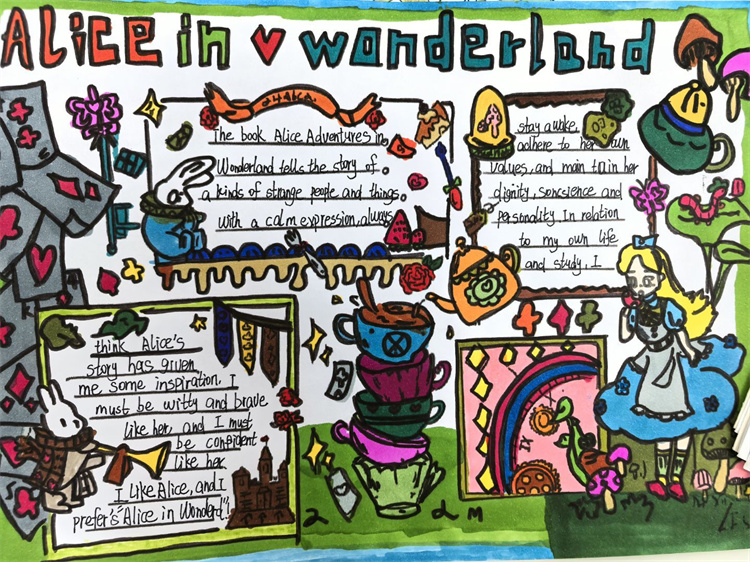 Alice in wonderland
The book Alice Adventures in
Wonderland tells the story of
a kinds of strange people and things.
with a calm expression, always
stay awake.
adhere to her own
values, and main tain her
dignity, sonscience and
personality. In relation
to my own life
and study, I
think Alice's
story has given
me some inspiration. I
must be witty and brave
like her, and I must
be confident
like her
I Like Alice, and I
prefer's "Alice in Wonderd"!